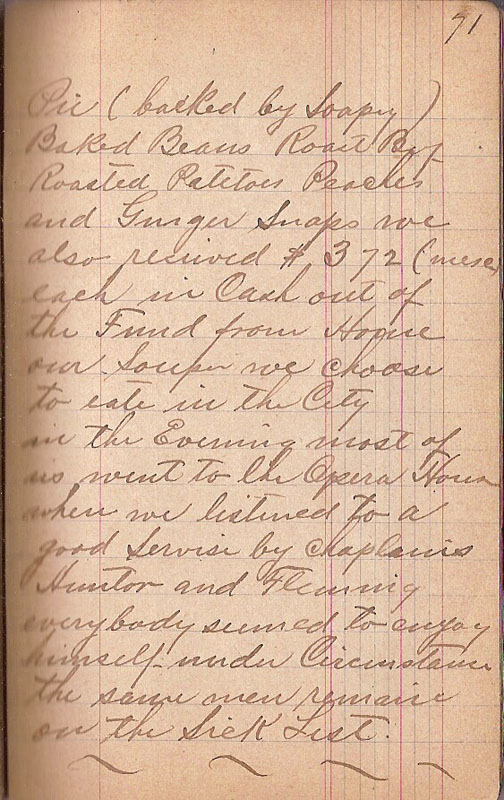 71
Pie (backed by Soapy)
Baked Beans Roast Bef.
Roasted Patetoes Peaches
and Ginger Snaps we
also recieved $ 372 (mese
each in Cash out of
the Fund from Home
our Souper we choose
to eate in the City
in the Evening most of
us went to the Opera House
when we listened to a
good Servise by Chaplains
Huntor and Fleming
everybody seemed to enjoy
himself under Circumstance
the same men remain
on the Sick List.